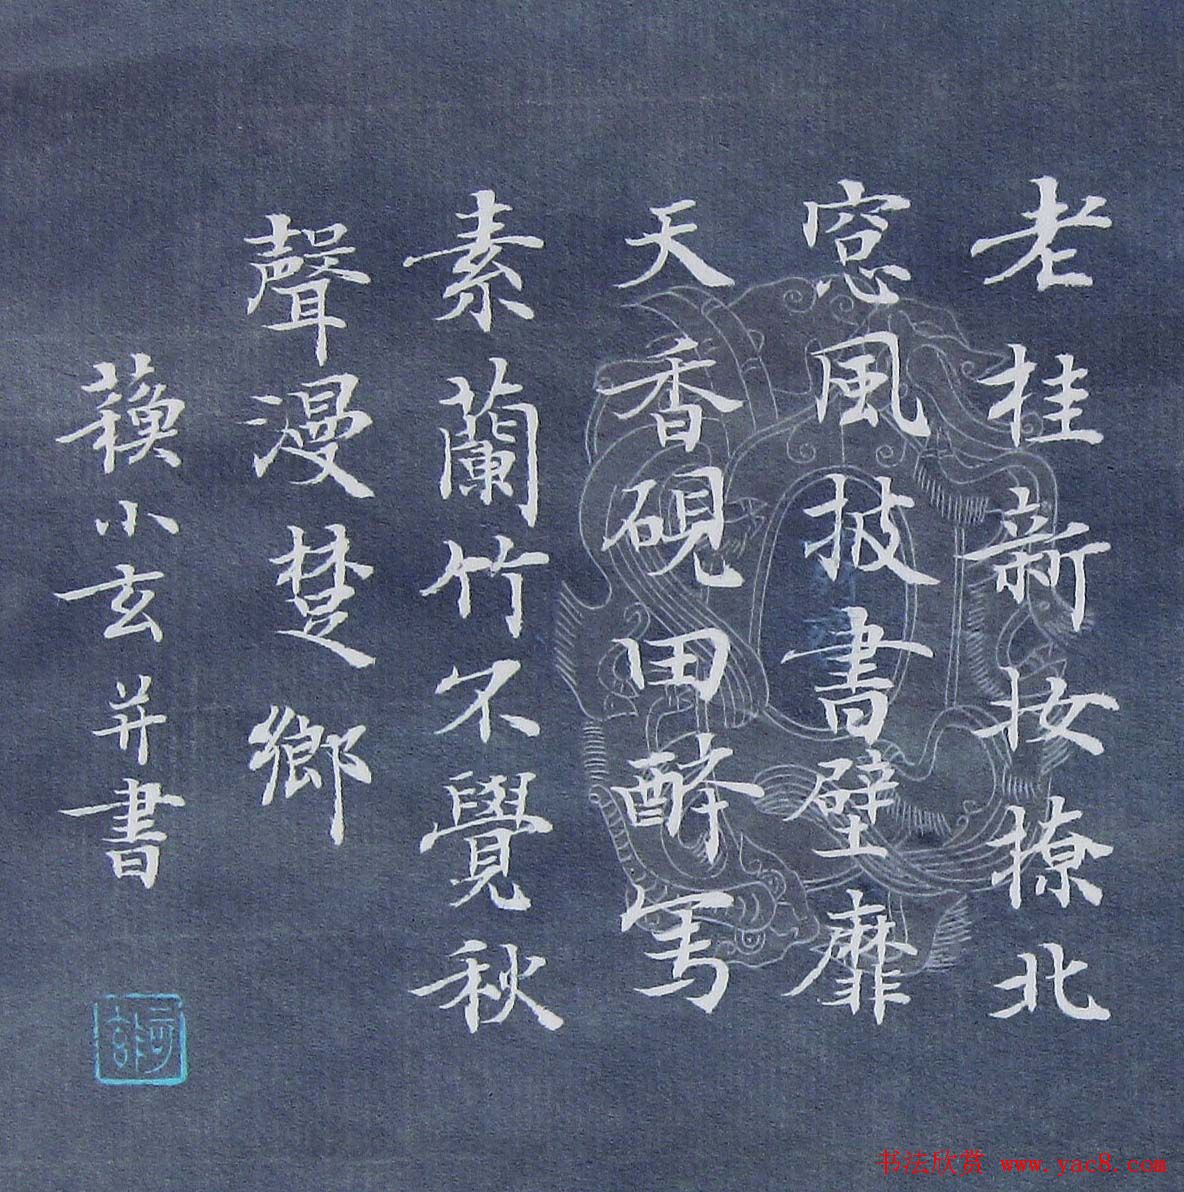 老桂新妝撩北
窓風披書壁靡
天香硯田醉写
素蘭竹不覺秋
聲漫楚鄉
小玄并書
书法欣赏 www.yac8.com